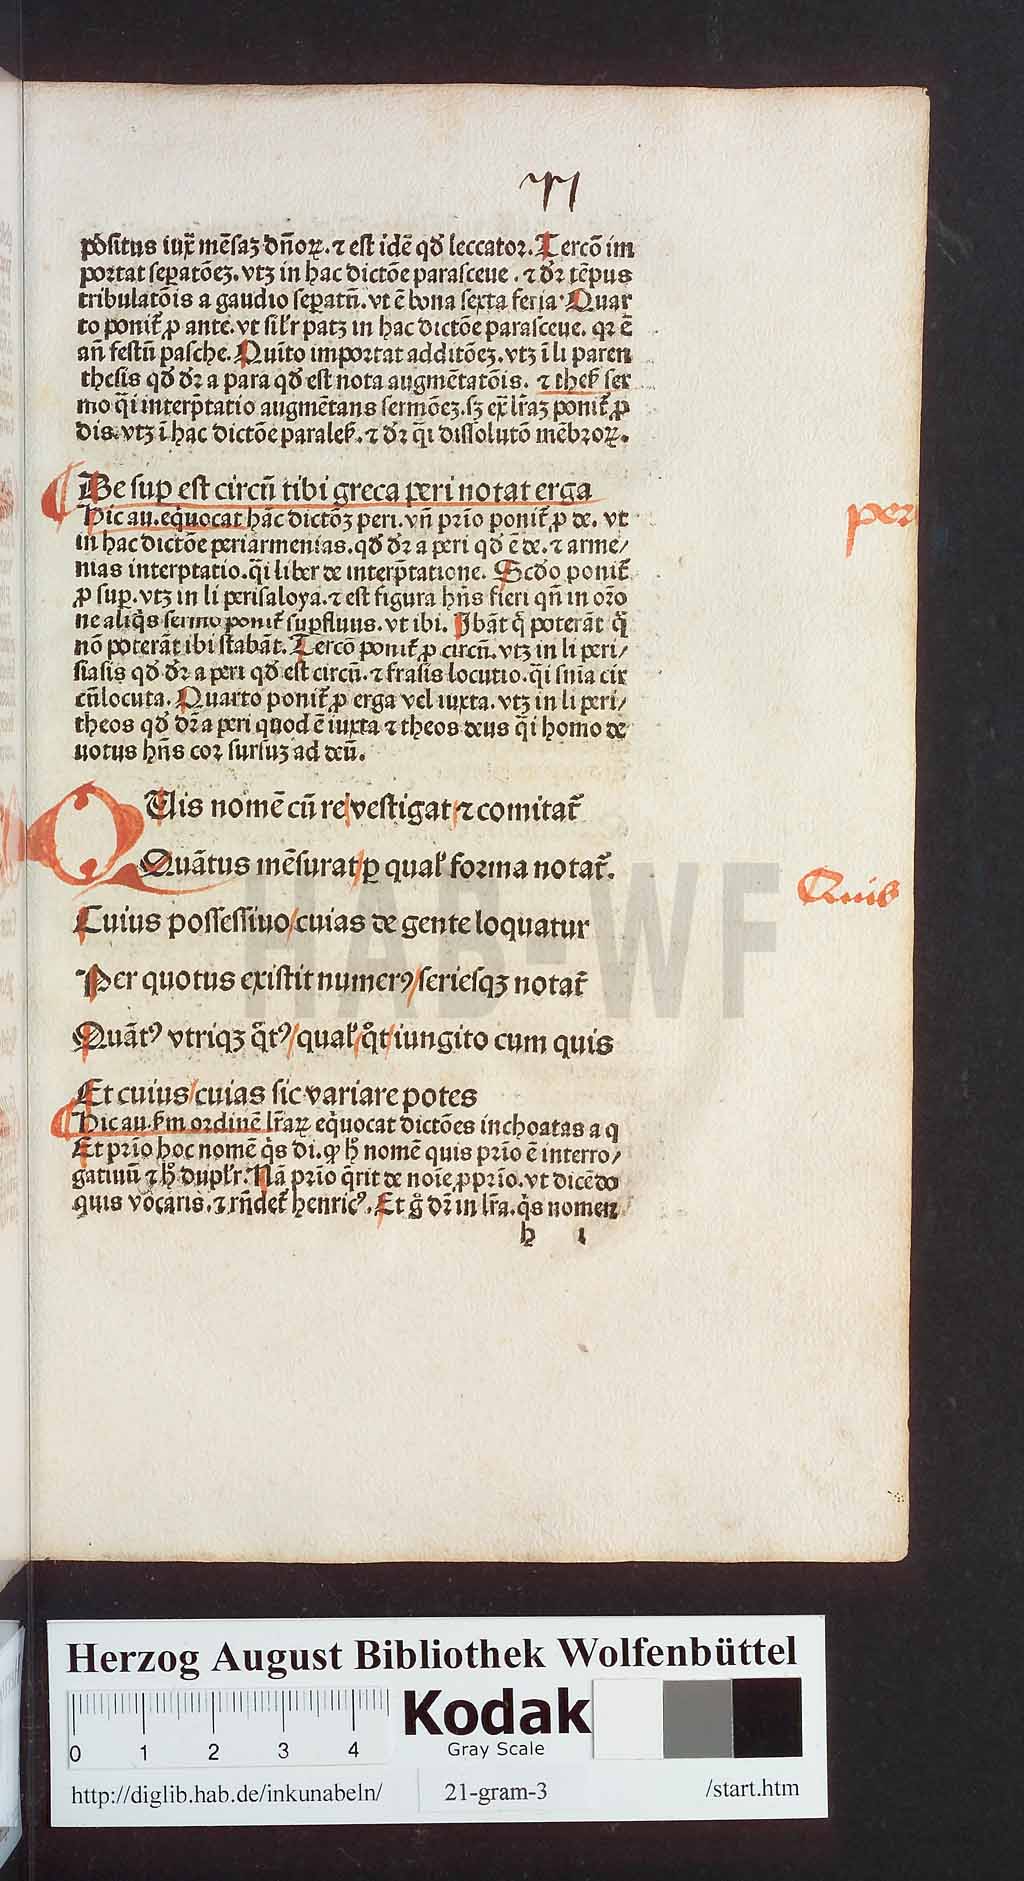 pōsitus iuxͬ mēsaꝫ dn̄oꝝ. ⁊ est idē qđ leccator. Tercō im
portat seꝑatōeꝫ. vtꝫ in hac dictōe parasceue. ⁊ dr̄ tēpus
tribulatōis a gaudio seꝑatū. vt ē bona sexta feria. Quar
to ponit᷑ ꝓ ante. vt sil'r patꝫ in hac dictōe parasceue. qꝛ ē
an̄ festū pasche. Quīto importat additōeꝫ. vtꝫ ī li paren
thesis qđ dr̄ a para qđ est nota augmētatōis. ⁊ thes̄ ser
mo q̄i interp̄tatio augmētans sermōeꝫ. sꝫ ex lr̄aꝫ ponit᷑ ꝓ
dis. vtꝫ ī hac dictōe paralel̄. ⁊ dr̄ q̄i dissolutō mēbroꝝ.
De suꝑ est circū tibi greca peri notat erga
Hic au. eq̇uocat hāc dictōꝫ peri. vn̄ prīo ponit᷑ ꝓ de. vt
in hac dictōe periarmenias. qđ dr̄ a peri qđ ē de. ⁊ arme/
nias interptatio. q̄i liber de interp̄tatione. Scđo ponit᷑
ꝓ suꝑ. vtꝫ in li perisaloya. ⁊ est figura hn̄s fieri qn̄ in oro
ne aliq̇s sermo ponit᷑ suꝑfluus. vt ibi. Jbāt q̇ poterāt q̇
nō poterāt ibi stabāt. Tercō ponit᷑ ꝓ circū. vtꝫ in li peri/
siasis qđ dr̄ a peri qđ est circū. ⁊ frasis locutio. q̄i snīa cir
cūlocuta. Quarto ponit᷑ ꝓ erga vel iuxta. vtꝫ in li peri/
theos qđ dr̄ a peri quod ē iuxta ⁊ theos deus q̄i homo de
uotus hn̄s cor sursuꝫ ad deū.
peri
QUis nomē cū re/vestigat/⁊ comitat᷑
Quātus mēsurat/ꝑ qual' forma notat᷑.
Quis
Cuius possessiuo/cuias de gente loquatur
Per quotus existit numerꝰ/seriesqꝫ notat᷑
Quātꝰ vtriqꝫ qͦtꝰ/qual'/qͦt/iungito cum quis
Et cuius/cuias sic variare potes
Hic au. ẜm ordinē lr̄aꝝ eq̇uocat dictōes inchoatas a q
Et prīo hoc nomē q̇s di. ꝙ hͦ nomē quis prīo ē interro/
gatiuū ⁊ hͦ dupl'r. Nā prīo q̄rit de noīe ꝓprīo. vt dicēdo
quis vocaris. ⁊ rn̄det᷑ henricꝰ. Et gͦ dr̄ in lr̄a. q̇s nomen
h i
Herzog August Bibliothek Wolfenbüttel
0 1 2 3 4
Kodak
Gray Scale
http://diglib.hab.de/inkunabeln/ 21-gram-3 /start.htm
HAB-WF